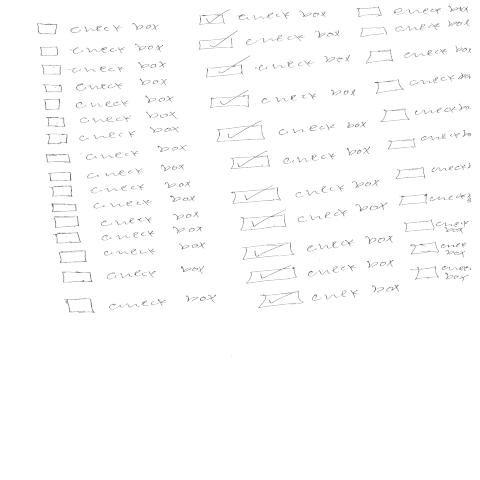 check box
check box
check box
check box
check box
check box
check box
check box
check box
check box
check box
check box
check box
check box
check box
check box
check box
check box
check box
check box
check box
check box
check box
check box
check box
check box
check box
check box
check box
check box
check box
check bo
check bo
check
check
check
box
check
box
check
box